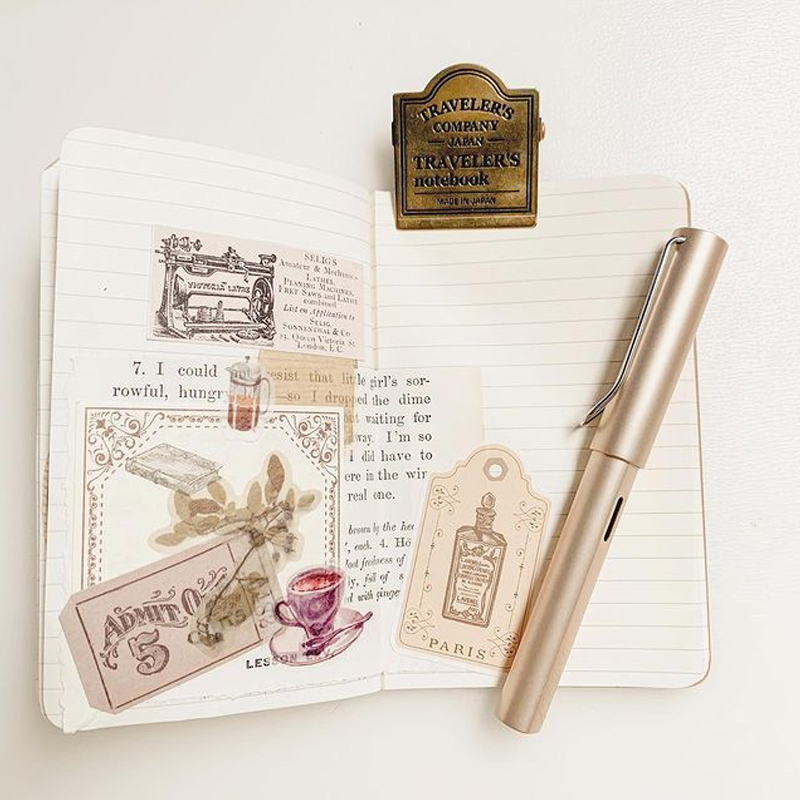 TRAVELER'S
COMPANY
JAPAN
TRAVELER'S
notebook
MADE IN JAPAN
VICTORIA LATHE
SELIG'S
Amateur & Mechanic's
LATHES,
PLANING MACHINES,
FRET SAWS and LATHE
combined
List on Application to
SELIG,
SONNENTHAL & Co
Queen Victoria St.
London, E.C.
7. I could not resist that little girl's sor-
rowful, hungry —so I dropped the dime
but waiting for
away. I'm so
I did have to
ere in the wir
real one.
brown by the hea
each. 4. Ho
foot freshness of
ly, full of s
d with ginge
ADMIT O
5
LESSON
PARIS